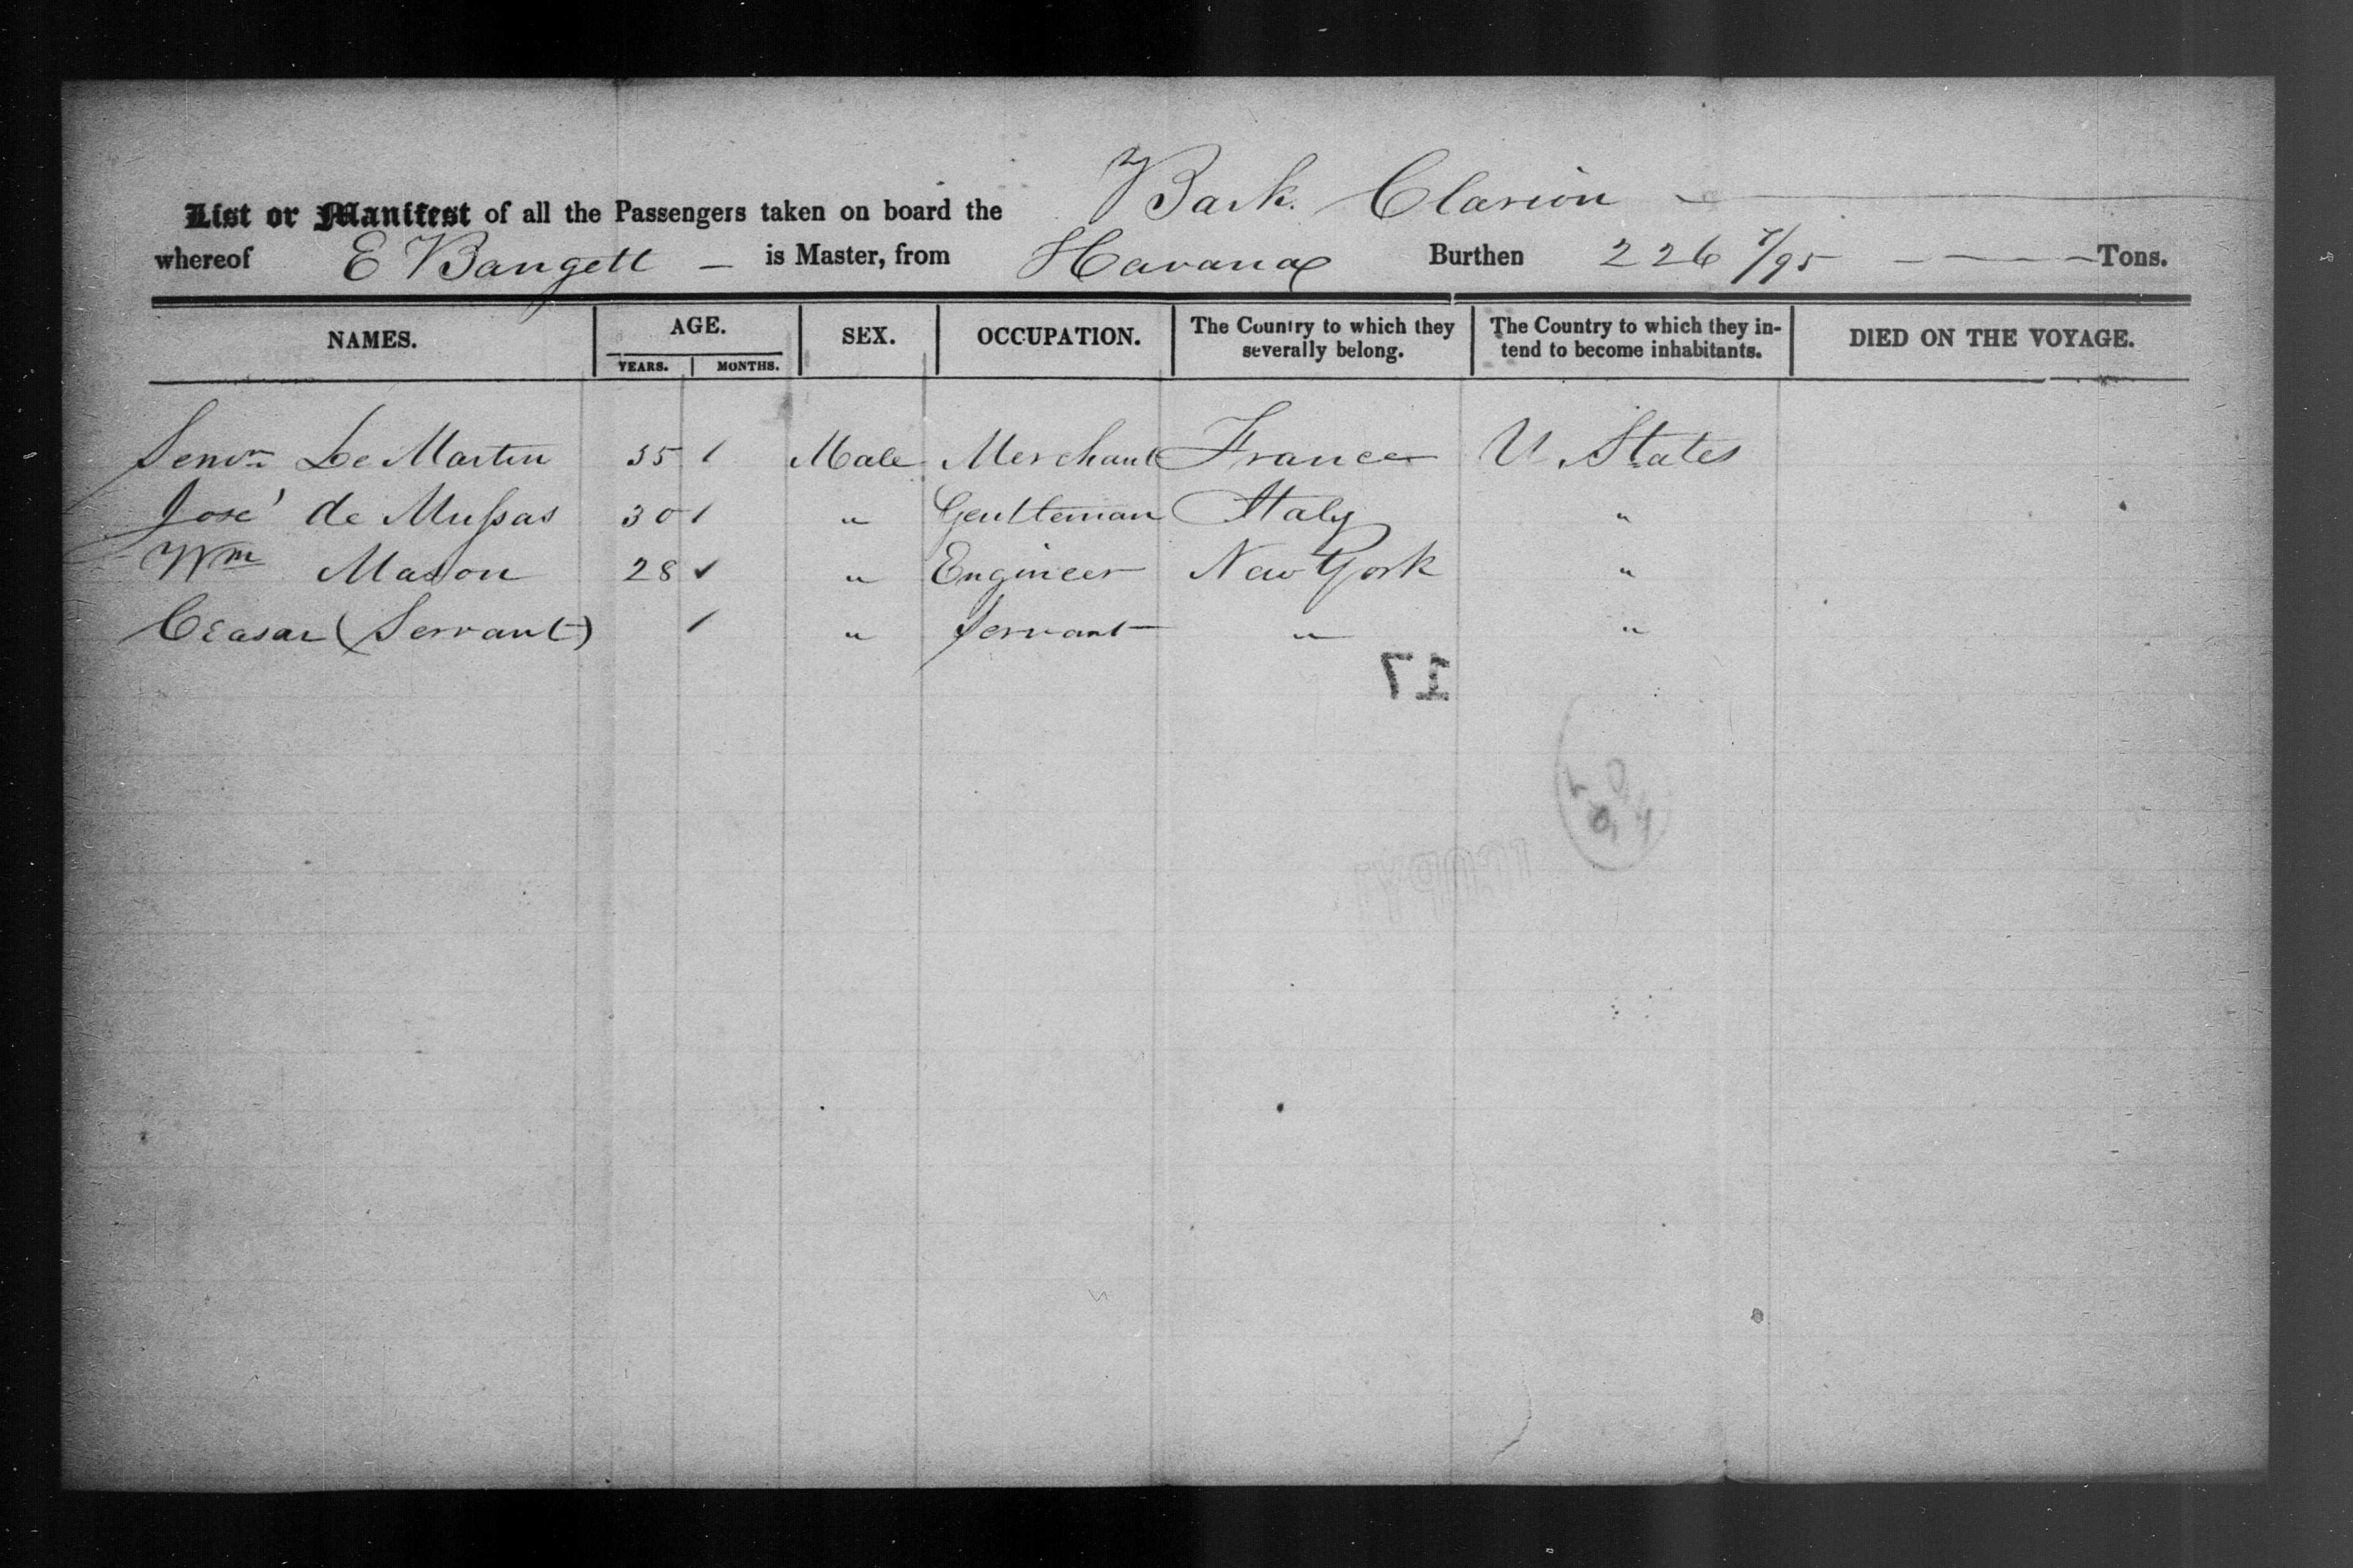 List or Manifest of all the Passengers taken on board the Bark. Clarion
whereof E Bangett is Master, from Havana Burthen 226 7/95 Tons.
NAMES. AGE. SEX. OCCUPATION. The Country to which they severally belong. The Country to which they in-tend to become inhabitants. DIED ON THE VOYAGE.
YEARS. MONTHS.
Senor Le Martin 35 Male Merchant France U. States
José de Mussas 30 " Gentleman Italy "
Wm Mason 28 " Engineer New York "
Ceasar (Servant) " Servant " "
17